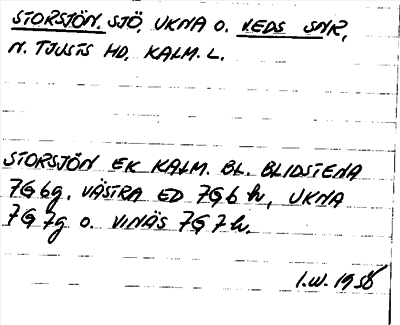 STORSJÖN. SJÖ, UKNA O. V.EDS SNR,
N. TJUSTS HD, KALM. L.
STORSJÖN EK KALM. BL. BLIDSTENA
7G6g. VÄSTRA ED 7G6h, UKNA
7G7g O. VINÄS 7G7h.
I.W. 1956